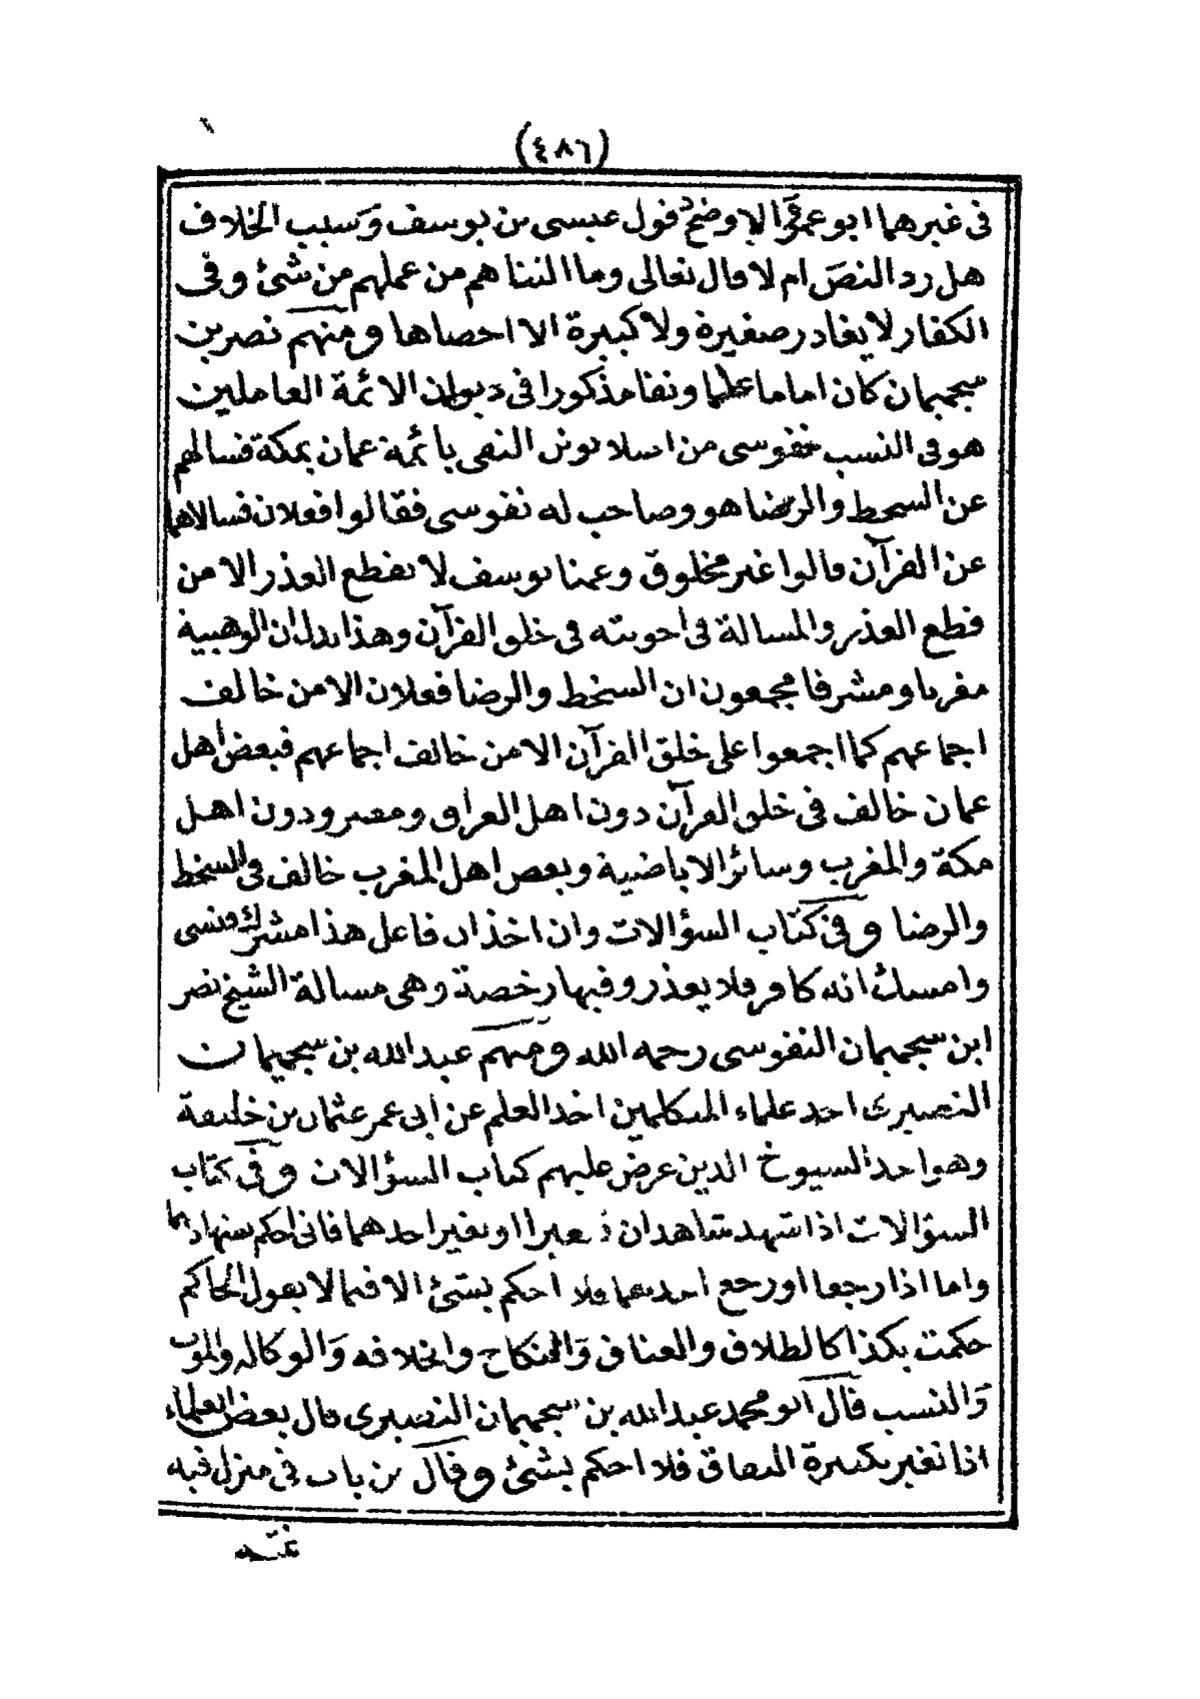 (٤٨٦)
في غيرهما ابو عمرو والاوضح قول عيسى بن يوسف وسبب الخلاف
هل رد النص ام لا قال تعالى وما التناهم من عملهم من شئ وفى
الكفار لا يغادر صغيرة ولا كبيرة الا احصاها ومنهم نصر بن
سجميمان كان اماما عالما ونقا مذكورا في ديوان الائمة العاملين
هو فى النسب نفوسى من التقى بائمة عمان بمكة فسالهم
عن السخط والرضا هو وصاحب له نفوسى فقالوا فعلان فسالاهما
عن القرآن قالوا غير مخلوق وعمنا يوسف لا يقطع العذر الا من
قطع العذر والمسالة في اجوبته في خلق القرآن وهذا يدل ان الوهبية
مغربا ومشرقا مجمعون ان السخط والرضا فعلان الا من خالف
اجماعهم كما اجمعوا على خلق القرآن الا من خالف اجماعهم فبعض اهل
عمان خالف في خلق القرآن دون اهل العراق ومصر ودون اهل
مكة والمغرب وسائر الاباضية وبعض اهل المغرب خالف في السخط
والرضا وفي كتاب السؤالات وان اخذ ان فاعل هذا مشرك ونسى
وامسك انه كافر فلا يعذر وفيها رخصة وهى مسالة الشيخ نصر
ابن سجميمان النفوسى رحمه الله ومنهم عبد الله بن سجميمان
النصيرى احد علماء المتكلمين اخذ العلم عن ابى عمر عثمان بن خليفة
وهو احد الشيوخ الذين عرض عليهم كتاب السؤالات وفي كتاب
السؤالات اذا شهد شاهدان تغيرا او تغير احدهما فانى احكم بشهادتهما
واما اذا رجعا او رجع احدهما فلا احكم بشئ الا فيما لا يقول الحاكم
حكمت بكذا كالطلاق والعتاق والنكاح والخلافه والوكاله والموت
والنسب قال ابو محمد عبد الله بن سجميمان النصيرى قال بعض العلماء
اذا تغير بكبيرة النفاق فلا احكم بشئ وقال من بات في منزل فيه